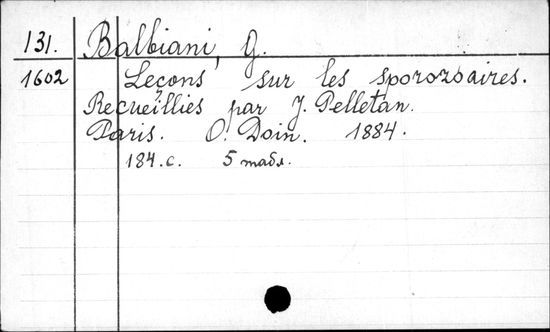 131. Balbiani, G.
1602 Leçons sur les sporozoaires.
Recueillies par J. Pelletan.
Paris. O. Doin. 1884.
184.c. 5 табл.